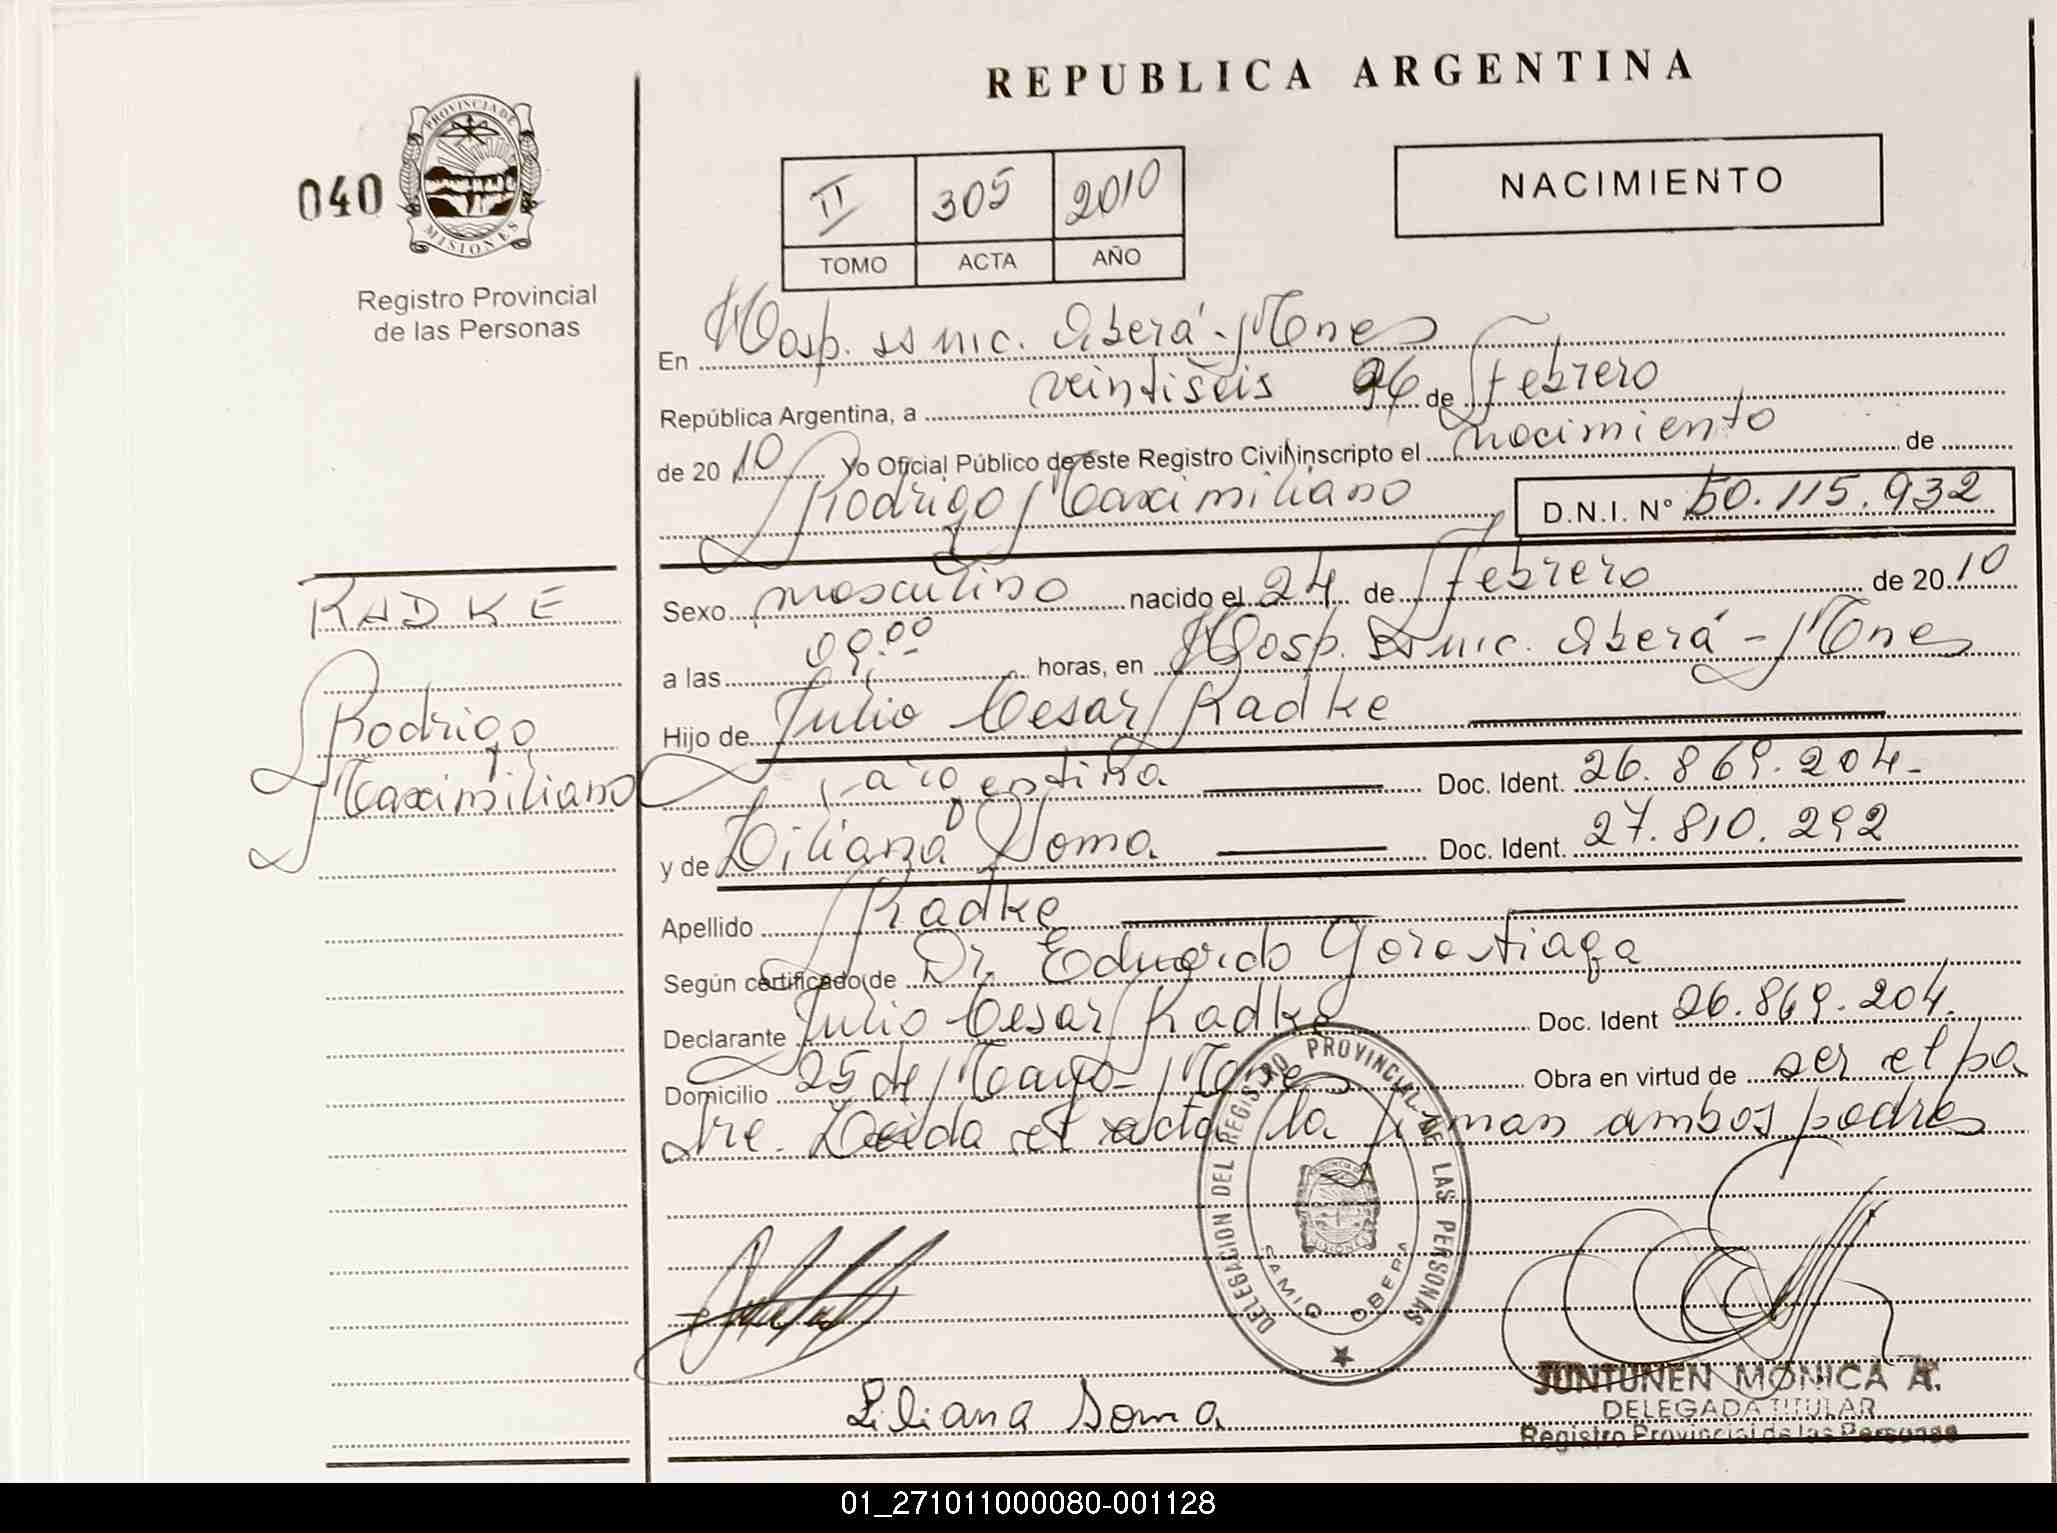 REPUBLICA ARGENTINA
040
PROVINCIA DE
MISIONES
Registro Provincial
de las Personas
II 305 2010
TOMO ACTA AÑO
NACIMIENTO
En Hosp. ss mic. Oberá - Mnes
República Argentina, a veintiseis 26 de Febrero
de 2010 Yo Oficial Público de este Registro Civil inscripto el nacimiento de
Rodrigo Maximiliano D.N.I. N° 50.115.932
RADKE
Rodrigo
Maximiliano
Sexo masculino nacido el 24 de Febrero de 2010
a las 09:00 horas, en Hosp. ss mic. Oberá - Mnes
Hijo de Julio Cesar Radke
argentina Doc. Ident. 26.869.204-
y de Liliana Soma Doc. Ident. 27.810.292
Apellido Radke
Según certificado de Dr. Eduardo Gorostiaga
Declarante Julio Cesar Radke Doc. Ident 26.869.204.
Domicilio 25 de Mayo - Mnes Obra en virtud de ser el pa
dre. Leida el acta la firman ambos padres
DELEGACION DEL REGISTRO PROVINCIAL DE LAS PERSONAS
SAMIC OBERA
MISIONES
Liliana Soma
JUNTUNEN MONICA A.
DELEGADA TITULAR
Registro Provincial de las Personas
01_271011000080-001128